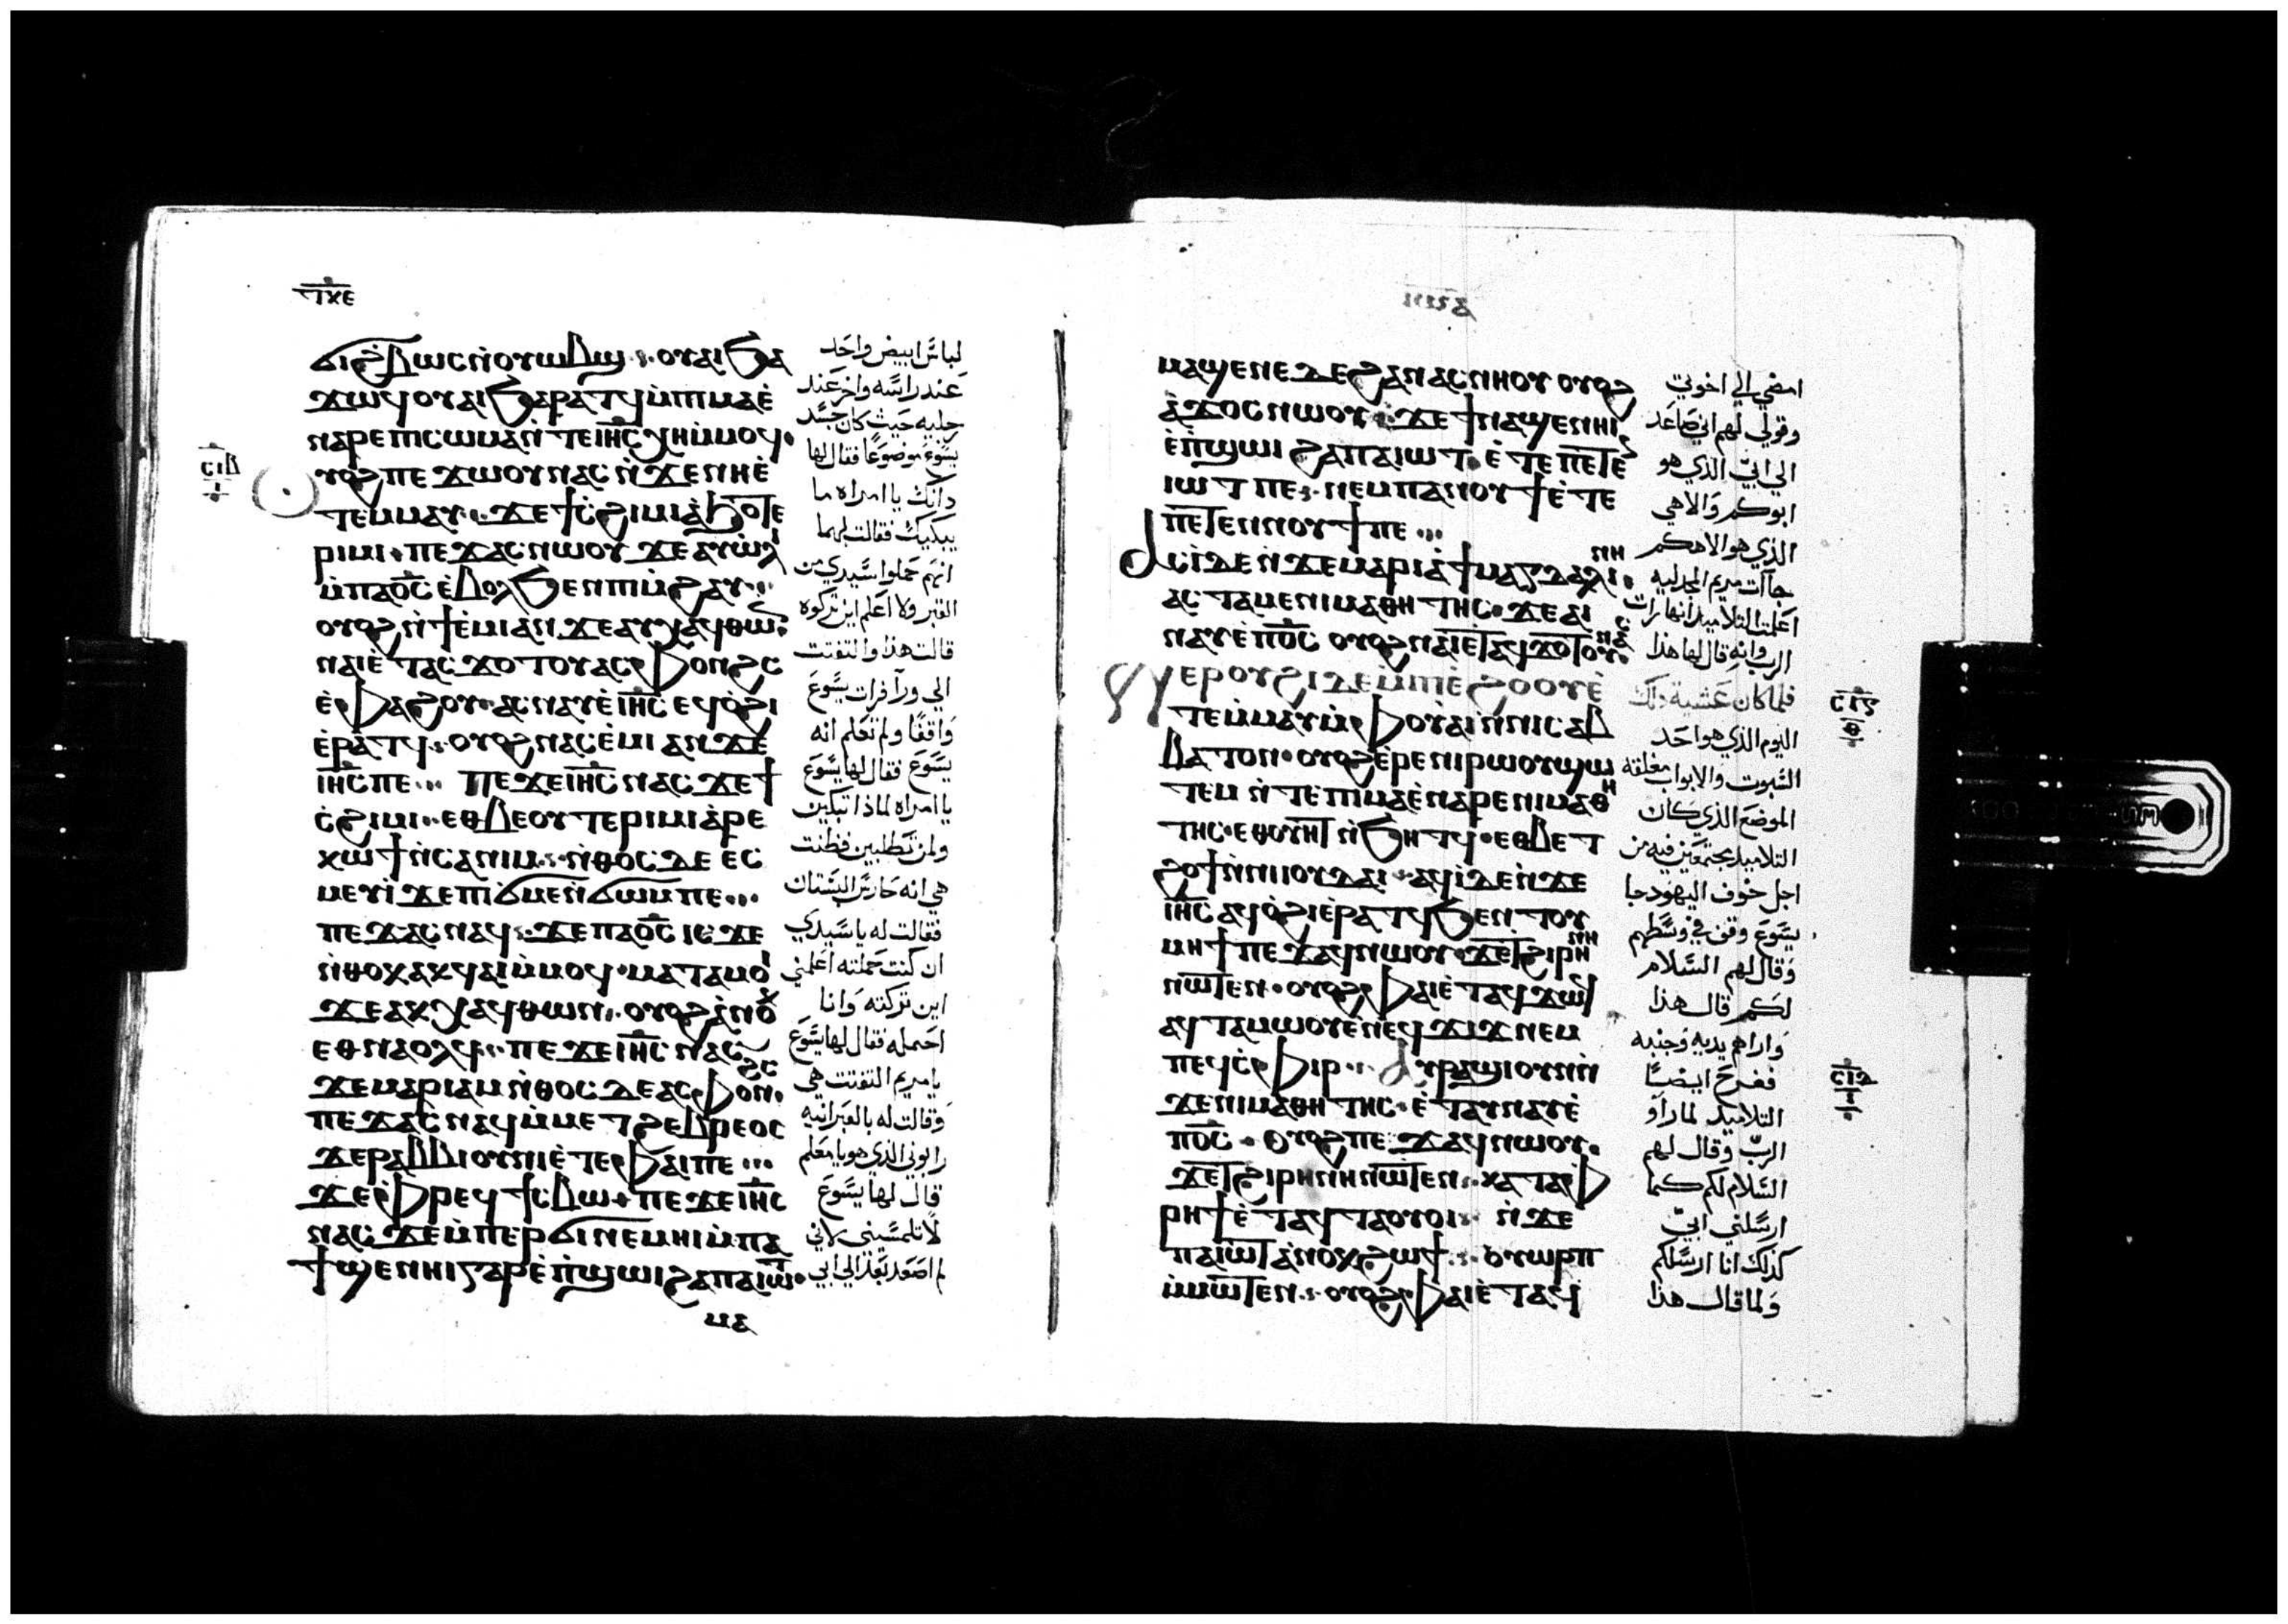 ⲧⲝⲉ
ϭⲓϩⲃⲱⲥⲛ̀ⲟⲩⲱⲃϣ ⲟⲩⲁⲓϧⲁ
ϫⲱϥⲟⲩⲁⲓϧⲁⲣⲁⲧϥⲙ̀ⲡⲓⲙⲁⲉ̀
ⲛⲁⲣⲉⲡⲓⲥⲱⲙⲁⲛ̀ⲧⲉⲓⲏ̅ⲥ̅ⲭⲏⲙ̀ⲙⲟϥ·
ⲟⲩⲟϩⲡⲉϫⲱⲟⲩⲛⲁⲥⲛ̀ϫⲉⲛⲏⲉ̀
ⲧⲉⲙⲙⲁⲩ·ϫⲉϯⲥ̀ϩⲓⲙⲓⲁ̀ϧⲟⲧⲉ
ⲣⲓⲙⲓ·ⲡⲉϫⲁⲥⲛⲱⲟⲩϫⲉⲁⲩⲱ̀ⲗⲓ
ⲙ̀ⲡⲁⲟ̅ⲥ̅ⲉ̀ⲃⲟⲗϧⲉⲛⲡⲓⲙ̀ϩⲁⲩ·
ⲟⲩⲟϩⲛ̀ϯⲉ̀ⲙⲓⲁⲛϫⲉⲁⲩⲭⲁϥⲑⲱⲛ
ⲛⲁⲓⲉ̀ⲧⲁⲥϫⲟⲧⲟⲩⲁⲥⲫⲟⲛϩⲥ
ⲉ̀ⲫⲁϩⲟⲩ·ⲁⲥⲛⲁⲩⲉ̀ⲓⲏ̅ⲥ̅ⲉϥⲟ̀ϩⲓ
ⲉ̀ⲣⲁⲧϥ·ⲟⲩⲟϩⲛⲁⲥⲉ̀ⲙⲓⲁⲛϫⲉ
ⲓⲏ̅ⲥ̅ⲡⲉ··· ⲡⲉϫⲉⲓⲏ̅ⲥ̅ⲛⲁⲥϫⲉϯ
ⲥ̀ϩⲓⲙⲓ·ⲉⲑⲃⲉⲟⲩⲧⲉⲣⲓⲙⲓⲁ̀ⲣⲉ
ⲕⲱϯⲛ̀ⲥⲁⲛⲓⲙ·ⲛ̀ⲑⲟⲥⲇⲉⲉⲥ
ⲙⲉⲩⲓ̀ϫⲉⲡⲓϭⲙⲉⲛ̀ϭⲱⲙⲡⲉ···
ⲡⲉϫⲁⲥⲛⲁϥ·ϫⲉⲡⲁⲟ̅ⲥ̅ⲓⲥϫⲉ
ⲛ̀ⲑⲟⲕⲁⲕϥⲁⲓⲙ̀ⲙⲟϥ·ⲙⲁⲧⲁⲙⲟⲓ
ϫⲉⲁⲕⲭⲁϥⲑⲱⲛ·ⲟⲩⲟϩⲁ̀ⲛⲟⲕ
ⲉⲑⲛⲁⲟⲗϥ·ⲡⲉϫⲉⲓⲏ̅ⲥ̅ⲛⲁⲥ
ϫⲉⲙⲁⲣⲓⲁⲙⲛ̀ⲑⲟⲥⲇⲉⲁⲥⲫⲟⲛϩⲥ
ⲡⲉϫⲁⲥⲛⲁϥⲙ̀ⲙⲉⲧϩⲉⲃⲣⲉⲟⲥ
ϫⲉⲣⲁⲃⲃⲓⲟⲩⲛⲓⲉ̀ⲧⲉⲫⲁⲓⲡⲉ···
ϫⲉⲫⲣⲉϥϯⲥ̀ⲃⲱ·ⲡⲉϫⲉⲓⲏ̅ⲥ̅
ⲛⲁⲥϫⲉⲙ̀ⲡⲉⲣϭⲓⲛⲉⲙⲏⲓⲙ̀ⲡⲁ
ϯϣⲉⲛⲏⲓⲅⲁⲣⲉ̀ⲡ̀ϣⲱⲓϩⲁⲡⲁⲓⲱⲧ·
ⲙⲁ
ⲥⲓⲃ
ⲓ
لباس ابيض واحد
عند راسه واخر عند
رجليه حيث كان جسد
يسوع موضوعا فقال لها
ذانك يا امراه ما
يبكيك فقالت لهما
انهم حملوا سيدي من
القبر ولا اعلم اين تركوه
قالت هذا والتفتت
الي ورآ فرات يسوع
واقفا ولم تعلم انه
يسوع فقال لها يسوع
يا امراه لماذا تبكين
ولمن تطلبين فظنت
هي انه حارس البستان
فقالت له يا سيدي
ان كنت حملته اعلمني
اين تركته وانا
احمله فقال لها يسوع
يا مريم التفتت هي
وقالت له بالعبرانيه
رابوني الذي هو يا معلم
قال لها يسوع
لا تلمسيني لاني
لم اصعد بعد الي ابي
ⲙⲁϣⲉⲛⲉⲇⲉϩⲁⲛⲁⲥⲛⲏⲟⲩⲟⲩⲟϩ
ⲁ̀ϫⲟⲥⲛⲱⲟⲩ·ϫⲉϯⲛⲁϣⲉⲛⲏⲓ
ⲉ̀ⲡ̀ϣⲱⲓϩⲁⲡⲁⲓⲱⲧ·ⲉ̀ⲧⲉⲡⲉⲧⲉⲛ
ⲓⲱⲧⲡⲉ·ⲛⲉⲙⲡⲁⲛⲟⲩϯⲉ̀ⲧⲉ
ⲡⲉⲧⲉⲛⲛⲟⲩϯⲡⲉ···
ⲁⲥⲓ̀ⲇⲉⲛ̀ϫⲉⲙⲁⲣⲓⲁ̀ϯⲙⲁⲅⲇⲁⲗⲓⲛⲏ
ⲁⲥⲧⲁⲙⲉⲛⲓⲙⲁⲑⲏⲧⲏⲥ·ϫⲉⲁⲓ
ⲛⲁⲩⲉ̀ⲡⲟ̅ⲥ̅ⲟⲩⲟϩⲛⲁⲓⲉ̀ⲧⲁϥϫⲟⲧⲟⲩⲛⲁⲥ
ⲉⲣⲟⲩϩⲓⲇⲉⲙ̀ⲡⲓⲉ̀ϩⲟⲟⲩⲉ̀
ⲧⲉⲙ̀ⲙⲁⲩⲙ̀ⲫⲟⲩⲁⲓⲛ̀ⲛⲓⲥⲁⲃ
ⲃⲁⲧⲟⲛ·ⲟⲩⲟϩⲉ̀ⲣⲉⲛⲓⲣⲱⲟⲩϣⲱ
ⲧⲉⲙⲛ̀ⲧⲉⲡⲓⲙⲁⲉ̀ⲛⲁⲣⲉⲛⲓⲙⲁⲑⲏ
ⲧⲏⲥ·ⲉⲑⲟⲩⲏⲧⲛ̀ϧⲏⲧϥ·ⲉⲑⲃⲉⲧ
ϩⲟϯⲛ̀ⲛⲓⲓⲟⲩⲇⲁⲓ·ⲁϥⲓ̀ⲇⲉⲛ̀ϫⲉ
ⲓⲏ̅ⲥ̅ⲁϥⲟ̀ϩⲓⲉ̀ⲣⲁⲧϥϧⲉⲛⲧⲟⲩ
ⲙⲏϯⲡⲉϫⲁϥⲛⲱⲟⲩ·ϫⲉⲧϩⲓⲣⲏⲛⲏ
ⲛⲱⲧⲉⲛ·ⲟⲩⲟϩⲫⲁⲓⲉ̀ⲧⲁϥϫⲟϥ
ⲁϥⲧⲁⲙⲱⲟⲩⲉ̀ⲛⲉϥϫⲓϫⲛⲉⲙ
ⲡⲉϥⲥ̀ⲫⲓⲣ·ⲁⲩⲣⲁϣⲓⲟⲩⲛⲛ̀
ϫⲉⲛⲓⲙⲁⲑⲏⲧⲏⲥ·ⲉ̀ⲧⲁⲩⲛⲁⲩⲉ̀
ⲡⲟ̅ⲥ̅·ⲟⲩⲟϩⲡⲉϫⲁϥⲛⲱⲟⲩ·
ϫⲉⲧϩⲓⲣⲏⲛⲏⲛⲱⲧⲉⲛ·ⲕⲁⲧⲁⲫ
ⲣⲏϯⲉ̀ⲧⲁϥⲧⲁⲟⲩⲟⲓ ⲛ̀ϫⲉ
ⲡⲁⲓⲱⲧⲁ̀ⲛⲟⲕϩⲱϯ·ⲟⲩⲱⲣⲡ
ⲙ̀ⲙⲱⲧⲉⲛ·ⲟⲩⲟϩⲫⲁⲓⲉ̀ⲧⲁϥ
امضي الي اخوتي
وقولي لهم اني صاعد
الي ابي الذي هو
ابوكم والاهي
الذي هو الاهكم
جآت مريم المجدليه
اعلمت التلاميذ انها رات
الرب وانه قال لها هذا
فلما كان عشية ذلك
اليوم الذي هو احد
السبوت والابواب مغلقه
الموضع الذي كان
التلاميذ مجتمعين فيه من
اجل خوف اليهود جا
يسوع وقف في وسطهم
وقال لهم السلام
لكم قال هذا
واراهم يديه وجنبه
ففرح ايضا
التلاميذ لما راو
الرب وقال لهم
السلام لكم كما
ارسلني ابي
كذلك انا ارسلكم
ولما قال هذا